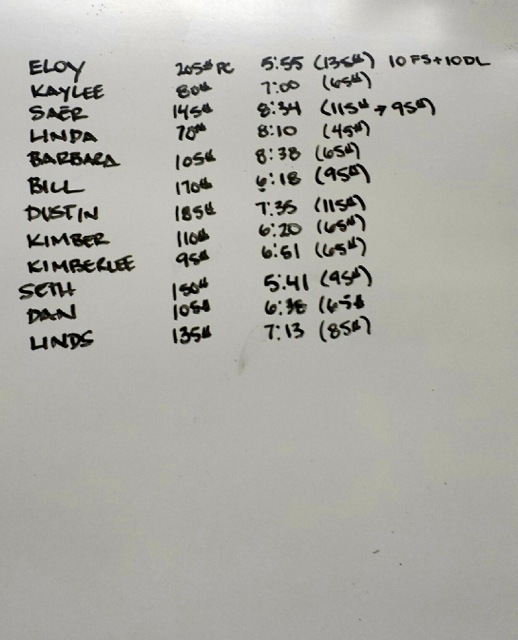 ELOY 205# PC 5:55 (135#) 10 FS + 10 DL
KAYLEE 80# 7:00 (65#)
SAER 145# 8:34 (115# → 95#)
LINDA 70# 8:10 (45#)
BARBARA 105# 8:38 (65#)
BILL 170# 6:18 (95#)
DUSTIN 185# 7:35 (115#)
KIMBER 110# 6:20 (65#)
KIMBERLEE 95# 6:51 (65#)
SETH 150# 5:41 (95#)
DAN 105# 6:38 (65#
LINDS 135# 7:13 (85#)